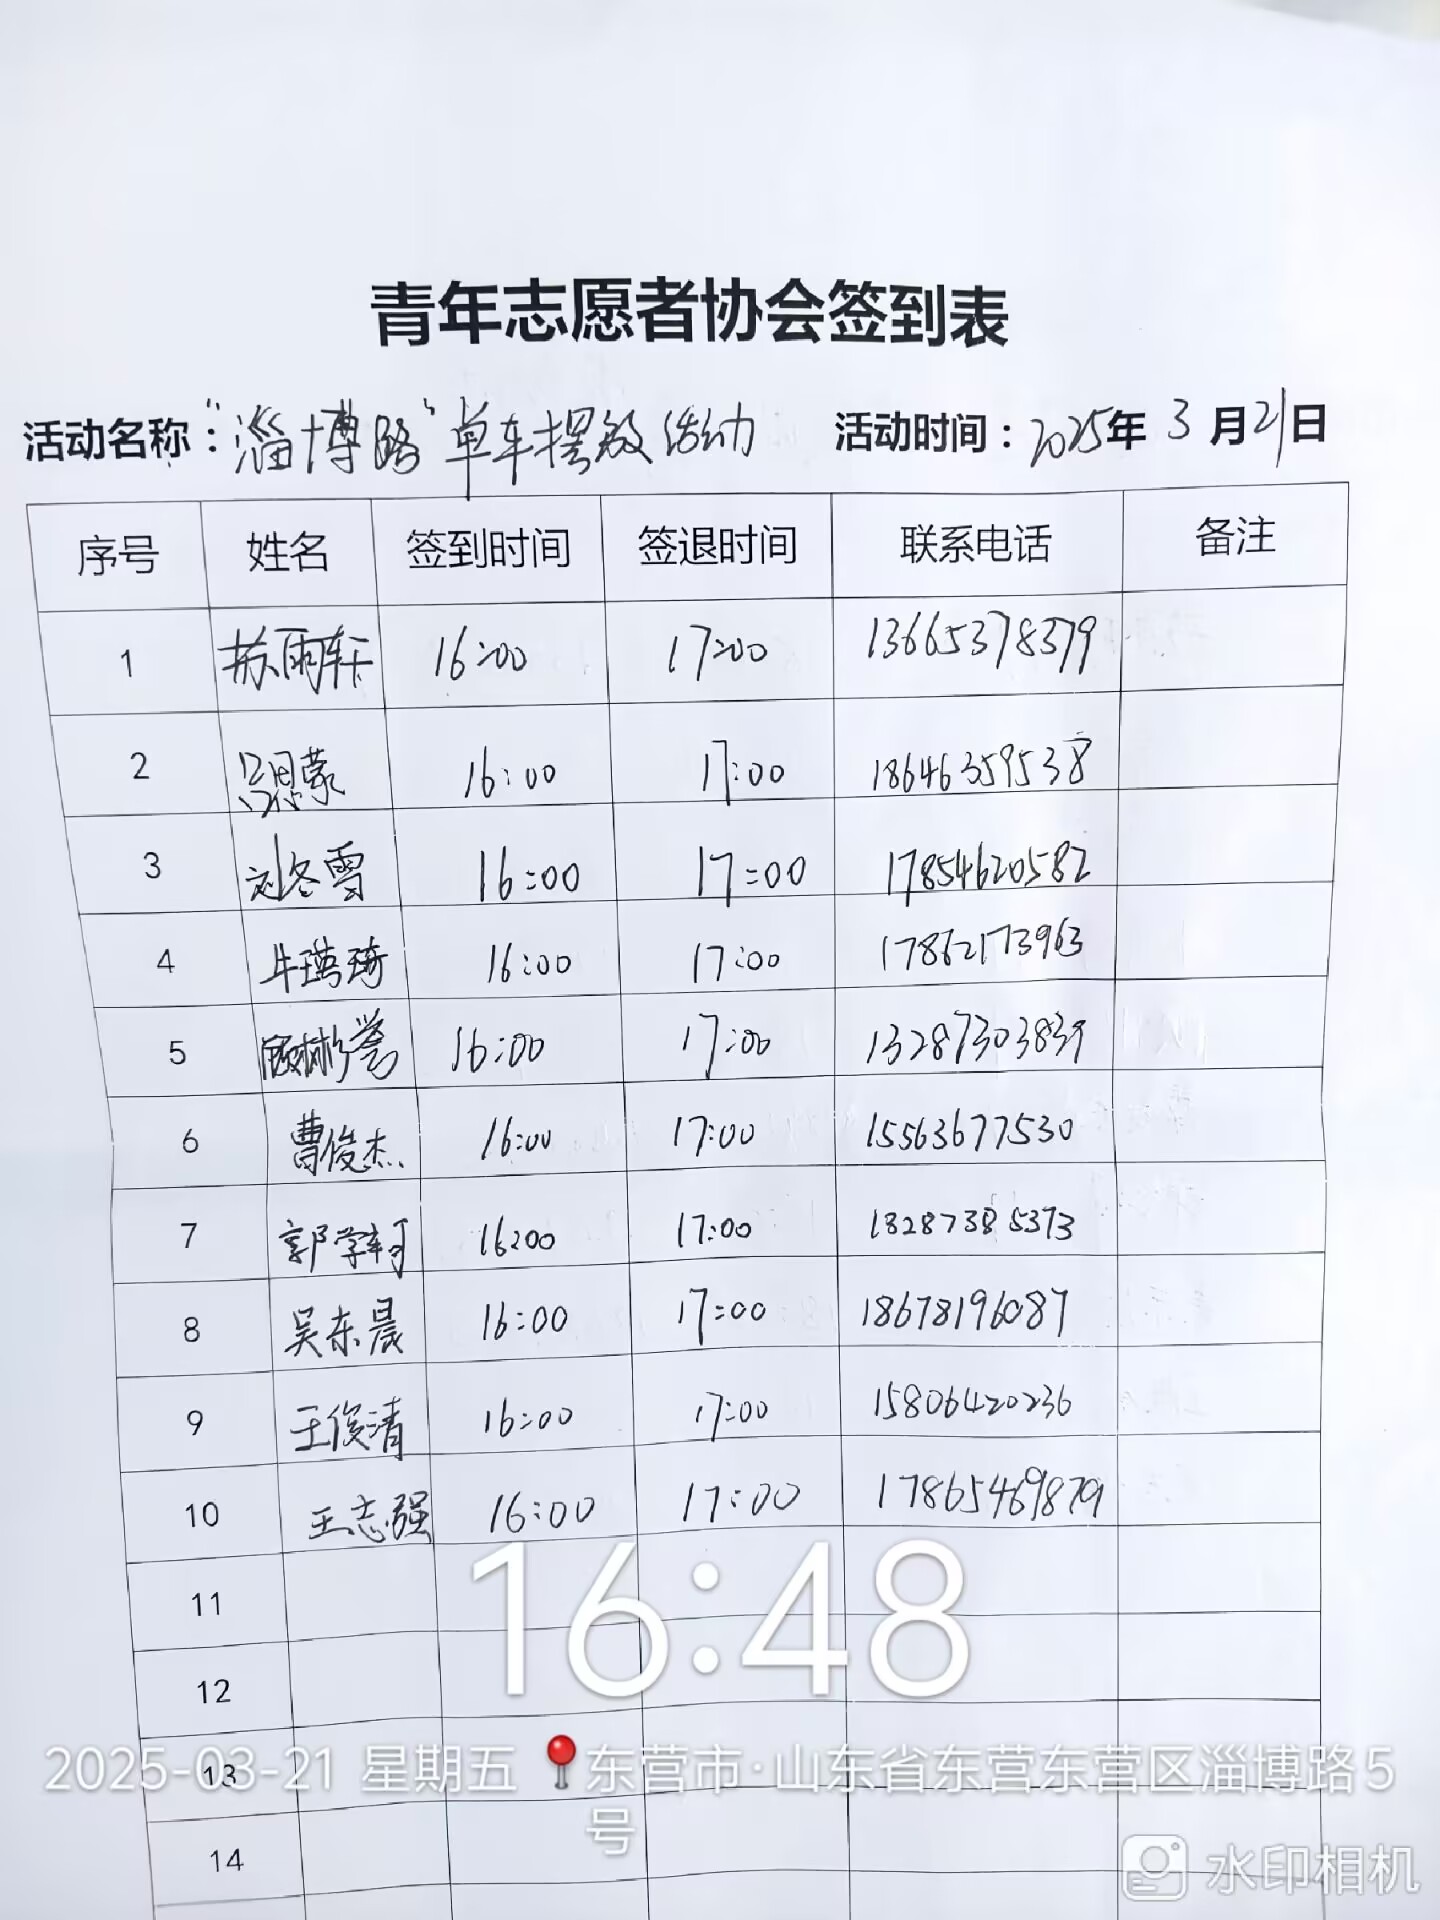 青年志愿者协会签到表
活动名称：“淄博路”单车摆放活动 活动时间：2025年3月21日
序号 姓名 签到时间 签退时间 联系电话 备注
1 苏雨轩 16:00 17:00 13665378379
2 16:00 17:00 18646359538
3 刘冬雪 16:00 17:00 17854620582
4 牛瑛琦 16:00 17:00 17862173963
5 16:00 17:00 13287303839
6 曹俊杰 16:00 17:00 15563677530
7 郭学轲 16:00 17:00 13287385373
8 吴东晨 16:00 17:00 18678196087
9 王俊清 16:00 17:00 15806420236
10 王志强 16:00 17:00 17865469879
11
12
13
14
16:48
2025-03-21 星期五 东营市·山东省东营东营区淄博路5
号
水印相机